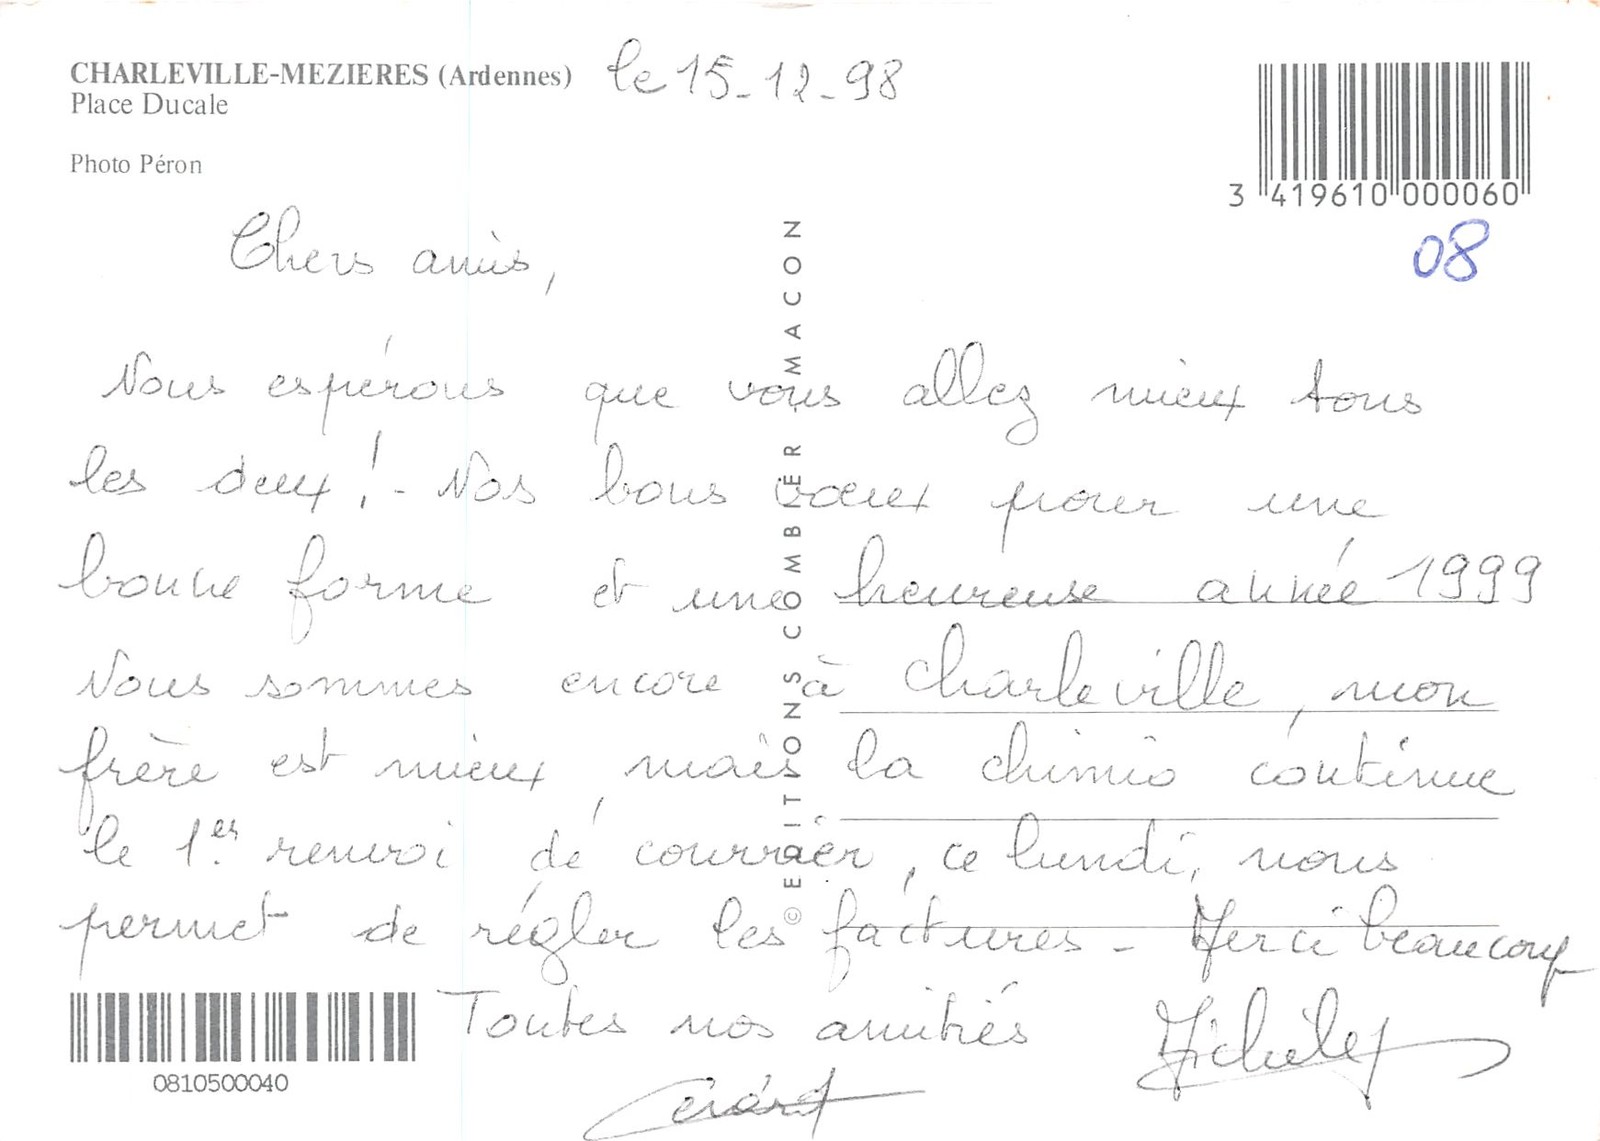 CHARLEVILLE-MEZIERES (Ardennes) le 15-12-98
Place Ducale
Photo Péron
3 419610 000060
08
Chers amis,
Nous espérons que vous allez mieux tous
les deux! - Nos bons vœux pour une
bonne forme et une heureuse année 1999
Nous sommes encore à Charleville, mon
frère est mieux, mais la chimio continue
le 1er renvoi de courrier, ce lundi, nous
permet de régler les factures - Merci beaucoup
Toutes nos amitiés Michèle
Gérard
0810500040
© EDITIONS COMBIER MACON